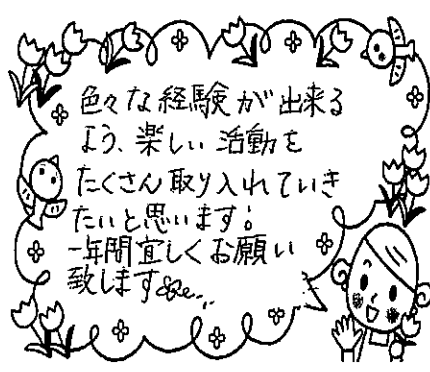 色々な経験が出来る
よう、楽しい活動を
たくさん取り入れていき
たいと思います!
一年間宜しくお願い
致します